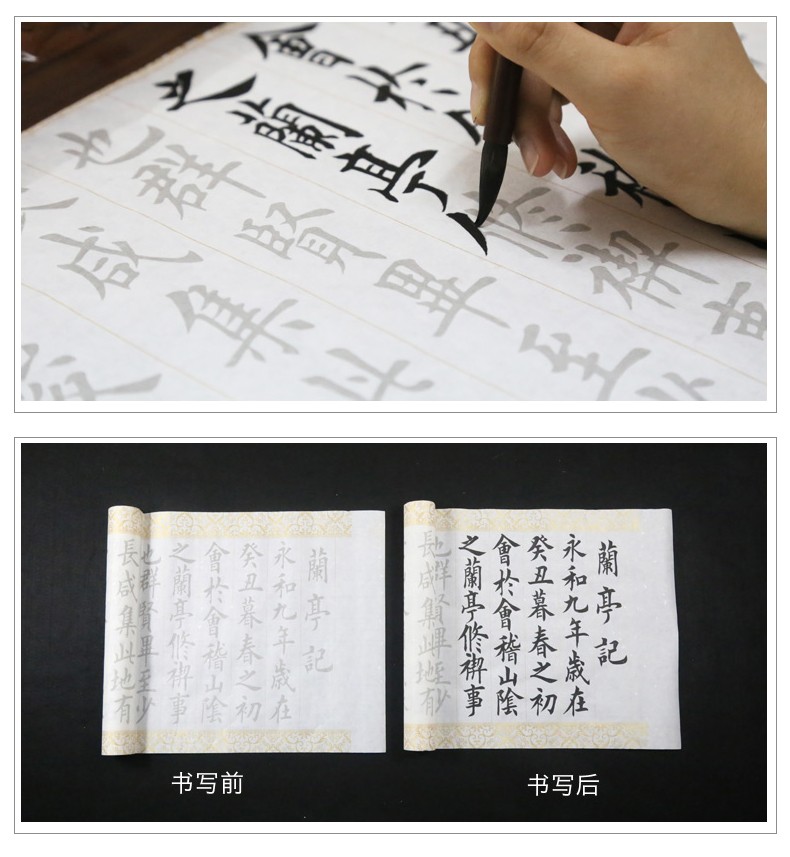 會於
之蘭亭修禊事
也群賢畢至少
咸集此
蘭亭記
永和九年歲在
癸丑暮春之初
會於會稽山陰
之蘭亭修禊事
也群賢畢至少
長咸集此地有
蘭亭記
永和九年歲在
癸丑暮春之初
會於會稽山陰
之蘭亭修禊事
书写前
书写后